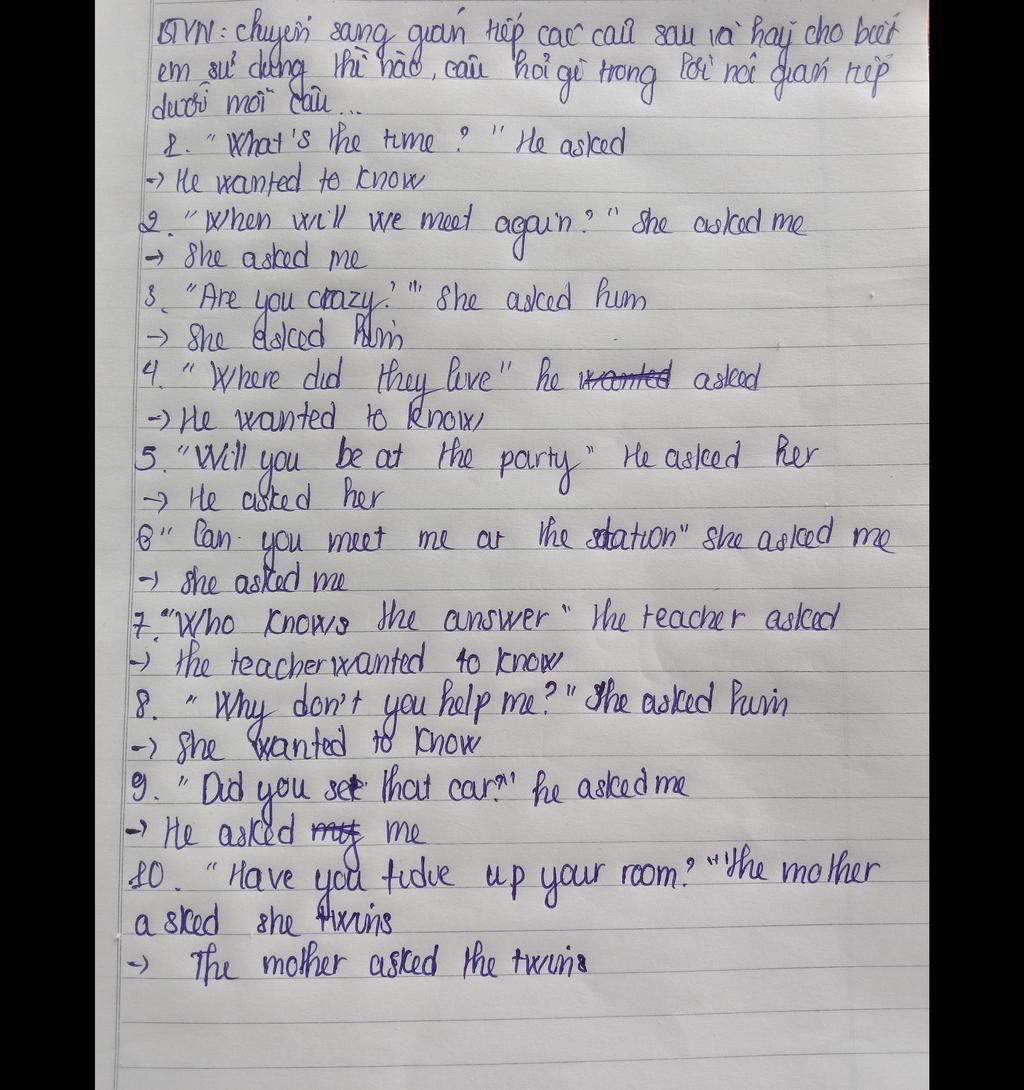 BTVN: chuyển sang gián tiếp các câu sau và hãy cho biết
em sử dụng thì nào, câu hỏi gì trong lời nói gián tiếp
dưới mỗi câu...
1. "What's the time?" He asked
→ He wanted to know
2. "When will we meet again?" She asked me
→ She asked me
3. "Are you crazy?" She asked him
→ She asked him
4. "Where did they live" he wanted asked
→ He wanted to know
5. "Will you be at the party" He asked her
→ He asked her
6" Can you meet me at the station" she asked me
→ she asked me
7. "Who knows the answer" the teacher asked
→ the teacher wanted to know
8. "Why don't you help me?" She asked him
→ She wanted to know
9. "Did you see that car?" he asked me
→ He asked me
10. "Have you tidve up your room?" "the mother
asked she twins
→ The mother asked the twins